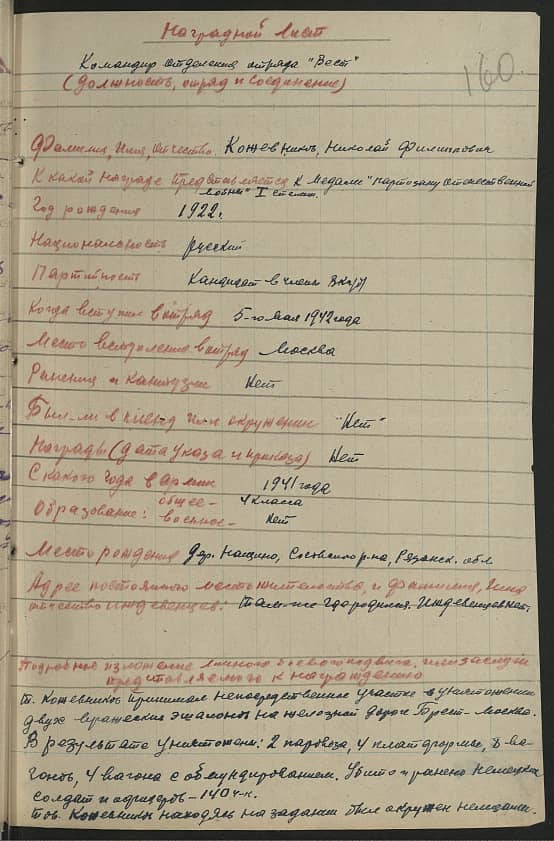 Наградной лист
Командир отделения отряда "Вест"
(Должность, отряд и соединение)
160.
Фамилия, Имя, Отчество. Кожевников, Николай Филиппович
К какой награде представляется к медали "партизану отечественной
войны" I степ.
Год рождения 1922 г.
Национальность русский
Партийность Кандидат в члены ВКП(б)
Когда вступил в отряд 5-го мая 1942 года
Место вступления в отряд Москва
Ранения и контузии Нет
Был-ли в плену или окружении "Нет"
Награды (дата указа и приказа) Нет
С какого года в армии 1941 года
Образование: общее- 4 класса
военное- нет
Место рождения дер. Нащино, р-на, Рязанск. обл
Адрес постоянного местожительства, и фамилия, Имя
отчество иждевенцев: Там же где родился. Иждевенцев нет.
Подробное изложение личного боевого подвига, или заслуги
представляемого к награждению
т. Кожевников принимал непосредственное участие в уничтожении
двух вражеских эшалонов на железной дороге Брест-Москва.
В результате уничтожены: 2 паровоза, 4 платформы, 8 ва-
гонов, 4 вагона с обмундированием. Убито и ранено немецких
солдат и офицеров - 140 ч-к.
Тов. Кожевников находясь на задании был окружен немцами.